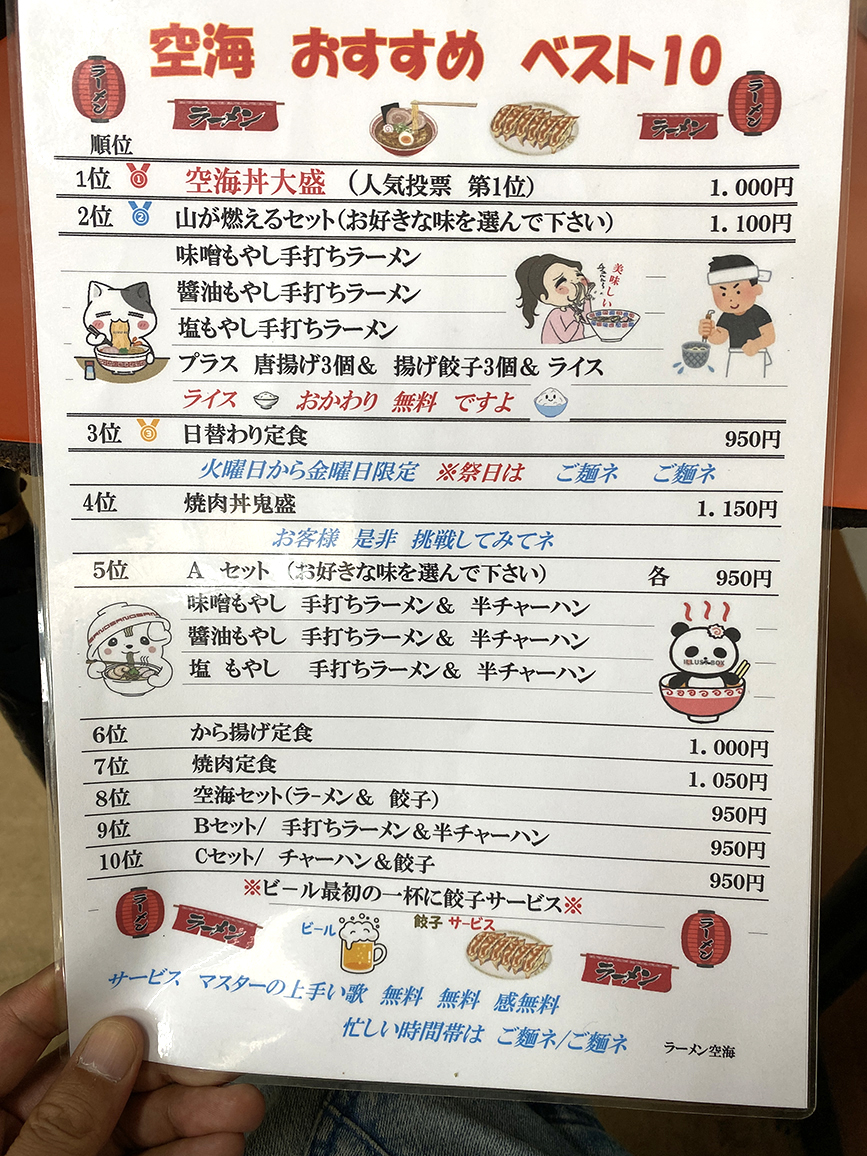 空海 おすすめ ベスト10
ラーメン
ラーメン
ラーメン
ラーメン
順位
1位 1 空海丼大盛 (人気投票 第1位) 1.000円
2位 2 山が燃えるセット(お好きな味を選んで下さい) 1.100円
味噌もやし手打ちラーメン
醬油もやし手打ちラーメン
塩もやし手打ちラーメン
美味しい
プラス 唐揚げ3個& 揚げ餃子3個& ライス
ライス おかわり 無料 ですよ
3位 3 日替わり定食 950円
火曜日から金曜日限定 ※祭日は ご麺ネ ご麺ネ
4位 焼肉丼鬼盛 1.150円
お客様 是非 挑戦してみてネ
5位 A セット (お好きな味を選んで下さい) 各 950円
味噌もやし 手打ちラーメン& 半チャーハン
醬油もやし 手打ちラーメン& 半チャーハン
塩 もやし 手打ちラーメン& 半チャーハン
ILLUST BOX
6位 から揚げ定食 1.000円
7位 焼肉定食 1.050円
8位 空海セット(ラーメン& 餃子) 950円
9位 Bセット/ 手打ちラーメン&半チャーハン 950円
10位 Cセット/ チャーハン&餃子 950円
※ビール最初の一杯に餃子サービス※
ラーメン
ラーメン
ビール
餃子 サービス
ラーメン
ラーメン
サービス マスターの上手い歌 無料 無料 感無料
忙しい時間帯は ご麺ネ/ご麺ネ
ラーメン空海